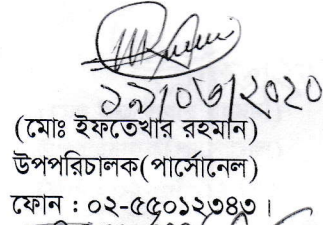 ১৯/০৬/২০২০
(মোঃ ইফতেখার রহমান)
উপপরিচালক(পার্সোনেল)
ফোন : ০২-৫৫০১২৩৪৩ ।